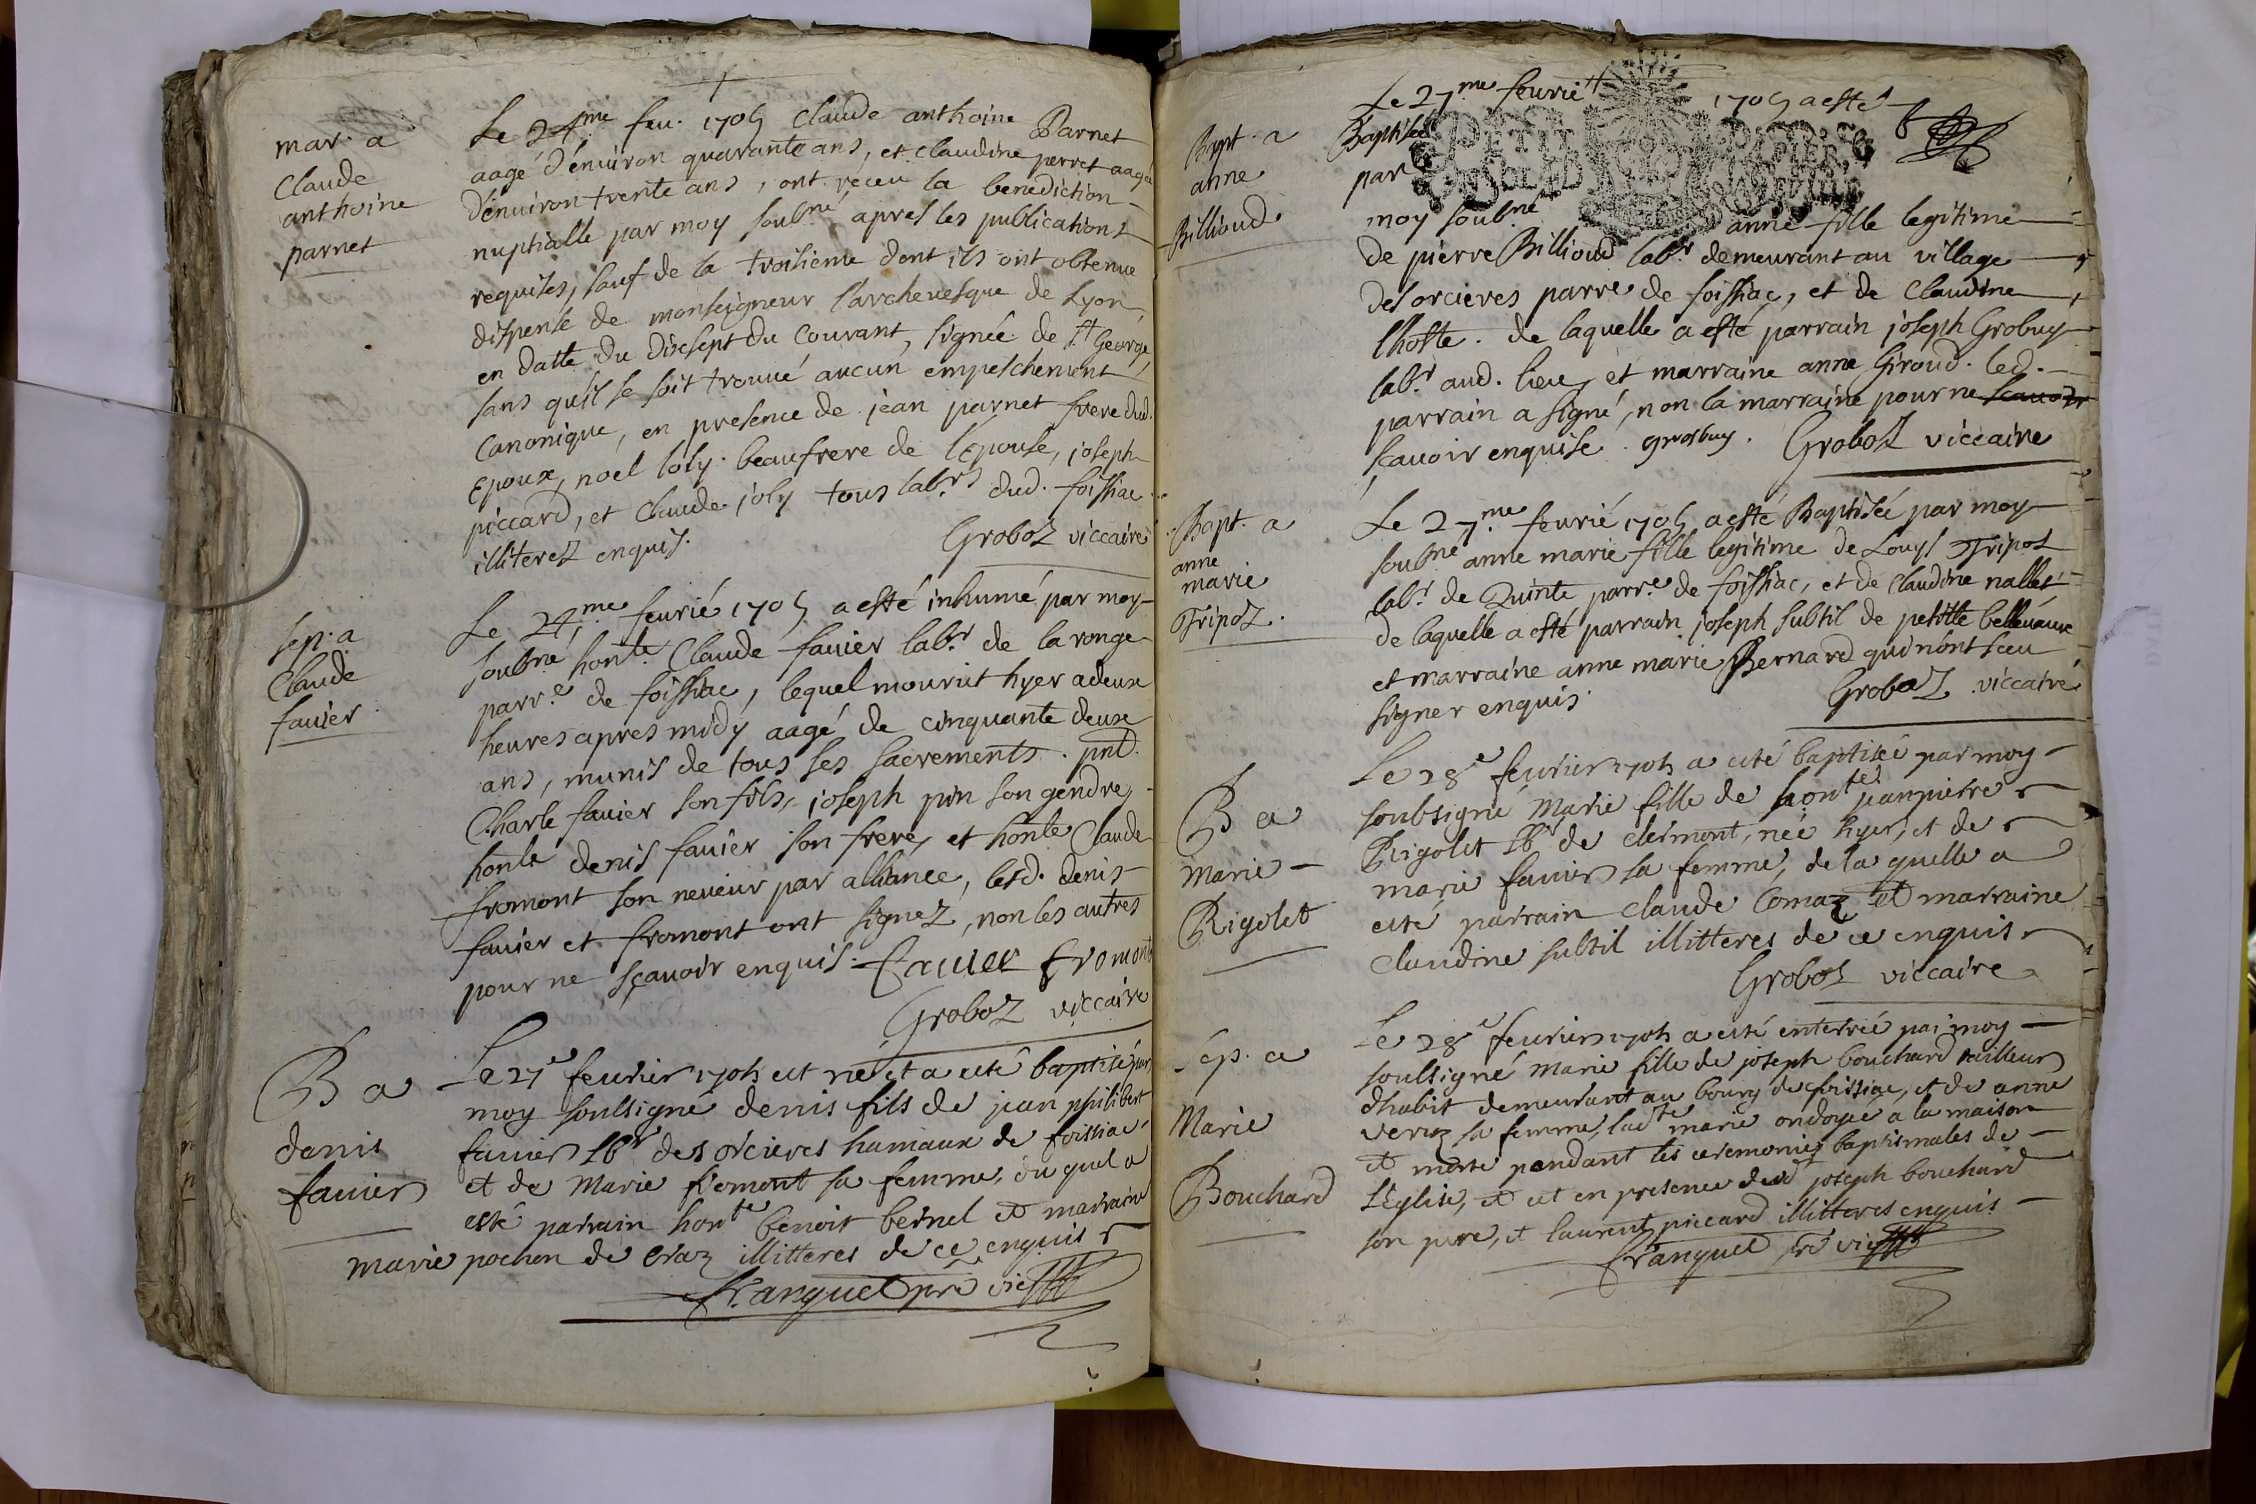 mar. a
Claude
anthoine
parnet
Le 24me feu. 1705 Claude anthoine Parnet
aagé d'enuiron quarante ans, et Claudine perret aagée
d'enuiron trente ans, ont receu la benediction
nuptialle par moy soubné apres les publications
requises, sauf de la troisieme dont ils ont obtenue
dispense de monseigneur l'archeuesque de Lyon
en datte du dixsept du courant, signée de St George,
sans qu'il se soit trouué aucun empeschement
canonique, en presence de jean parnet frere dud.
Epoux, noel joly beaufrere de l'Epouse, joseph
piccard, et Claude joly tous labrs dud. foissiac
illiterez enquis.
Groboz viccaire
sep. a
Claude
fauier
Le 24me feurié 1705 a esté inhumé par moy
soubné honle Claude fauier labr de la ronge
parre de foissiac, lequel mourut hyer a deux
heures apres midy aagé de cinquante deux
ans, munis de tous ses sacrements. pnt.
Charle fauier son fils, joseph pin son gendre,
honle denis fauier son frere, et honle Claude
fromont son neueur par alliance, lesd. denis
fauier et fromont ont signez, non les autres
pour ne sçauoir enquis. fauier fromont
Groboz viccaire
B a
denis
fauier
Le 27e feurier 1705 est né et a esté baptisé par
moy soussigné denis fils de jean philibert
fauier lbr des orcieres hamaux de foissiac
et de Marie fromont sa femme, du quel a
esté parrain honte benoit bernel et marraine
marie pochon de Craz illitteres de ce enquis
franquet pre vic
Bapt. a
anne
Billioud
Le 27me feurié 1705 a esté
Baptisée
par
moy soubné anne fille legitime
de pierre Billioud labr demeurant au village
des orcieres parre de foissiac, et de Claudine
lhoste. de laquelle a esté parrain joseph Grobuy
labr aud. lieu, et marraine anne Giroud. led.
parrain a signé, non la marraine pour ne scauoir
scauoir enquise. grosbuy. Groboz viccaire
Bapt. a
anne
marie
Tripoz.
Le 27me feurié 1705 a esté Baptisée par moy
soubné anne marie fille legitime de Louys Tripoz
labr de Quinte parre de foissiac, et de Claudine nallet
de laquelle a esté parrain joseph subtil de petitte belleuaux
et marraine anne marie Bernard qui n'ont sceu
signer enquis.
Groboz viccaire
B a
Marie
Rigolet
Le 28e feurier 1705 a esté baptisée par moy
soubsigné Marie fille de honte jean pierre
Rigolet lbr de clermont, née hyer, et de
marie fauier sa femme, de la quelle a
esté parrain claude Comaz et marraine
claudine subtil illitteres de ce enquis
Groboz viccaire
Sép. a
Marie
Bouchard
Le 28e feurier 1705 a esté enterrée par moy
soussigné Marie fille de joseph bouchard tailleur
d'habit demeurant au bourg de foissiac, et de anne
veruz sa femme, ladte marie ondoyée a la maison
et morte pendant les ceremonies baptismales de
l'Eglise, et cet en presence dud joseph bouchard
son pere, et laurent piccard illitteres enquis
franquet pre vic